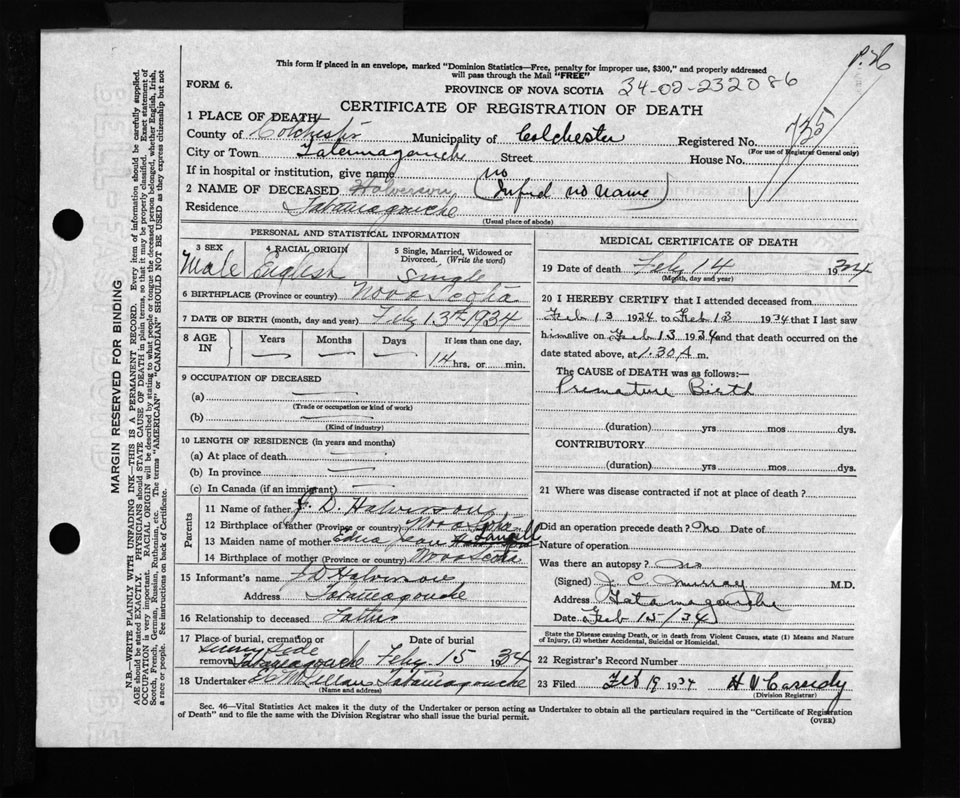 P. H
This form if placed in an envelope, marked "Dominion Statistics—Free, penalty for improper use, $300," and properly addressed
will pass through the Mail "FREE"
FORM 6.
PROVINCE OF NOVA SCOTIA
34-02-232086
CERTIFICATE OF REGISTRATION OF DEATH
735
1 PLACE OF DEATH
County of Colchester Municipality of Colchester Registered No.
(For use of Registrar General only)
City or Town Tatamagouche Street House No.
If in hospital or institution, give name no
2 NAME OF DECEASED Halverson (Infnd no name)
Residence Tatamagouche
(Usual place of abode)
PERSONAL AND STATISTICAL INFORMATION
3 SEX 4 RACIAL ORIGIN 5 Single, Married, Widowed or
Divorced. (Write the word)
Male English Single
6 BIRTHPLACE (Province or country) Nova Scotia
7 DATE OF BIRTH (month, day and year) Feby 13th 1934
8 AGE IN Years Months Days If less than one day,
14 hrs. or min.
9 OCCUPATION OF DECEASED
(a)
(Trade or occupation or kind of work)
(b)
(Kind of industry)
10 LENGTH OF RESIDENCE (in years and months)
(a) At place of death
(b) In province
(c) In Canada (if an immigrant)
Parents
11 Name of father J. D. Halverson
12 Birthplace of father (Province or country) Nova Scotia
13 Maiden name of mother Edna Jean Langill
14 Birthplace of mother (Province or country) Nova Scotia
15 Informant's name J D Halverson
Address Tatamagouche
16 Relationship to deceased Father
17 Place of burial, cremation or Date of burial
Sunny Side
removal Tatamagouche Feby. 15 1934
18 Undertaker Tatamagouche
(Name and address)
MEDICAL CERTIFICATE OF DEATH
19 Date of death Feby 14 1934
(Month, day and year)
20 I HEREBY CERTIFY that I attended deceased from
Feb 13 1934 to Feb 13 1934 that I last saw
him alive on Feb 13 1934 and that death occurred on the
date stated above, at 1.30 A m.
The CAUSE OF DEATH was as follows:—
Premature Birth
(duration) yrs mos dys.
CONTRIBUTORY
(duration) yrs. mos. dys.
21 Where was disease contracted if not at place of death?
Did an operation precede death? No Date of
Nature of operation
Was there an autopsy? No
(Signed) J. C. Murray M.D.
Address Tatamagouche
Date Feb 15/34
State the Disease causing Death, or in death from Violent Causes, state (1) Means and Nature
of Injury, (2) whether Accidental, Suicidal or Homicidal.
22 Registrar's Record Number
23 Filed Feb 19 1934 H V Cassidy
(Division Registrar)
Sec. 46—Vital Statistics Act makes it the duty of the Undertaker or person acting as Undertaker to obtain all the particulars required in the "Certificate of Registration
of Death" and to file the same with the Division Registrar who shall issue the burial permit.
(OVER)
MARGIN RESERVED FOR BINDING
N.B.—WRITE PLAINLY WITH UNFADING INK—THIS IS A PERMANENT RECORD. Every item of information should be carefully supplied.
AGE should be stated EXACTLY. PHYSICIANS should STATE CAUSE OF DEATH in plain terms, so that it may be properly classified. Exact statement of
OCCUPATION is very important. RACIAL ORIGIN will be described by stating to what people or tongue the deceased person belonged, whether English, Irish,
Scotch, French, German, Russian, Ruthenian, etc. The terms "AMERICAN" or "CANADIAN" SHOULD NOT BE USED as they express citizenship but not
a race or people. See instructions on back of Certificate.